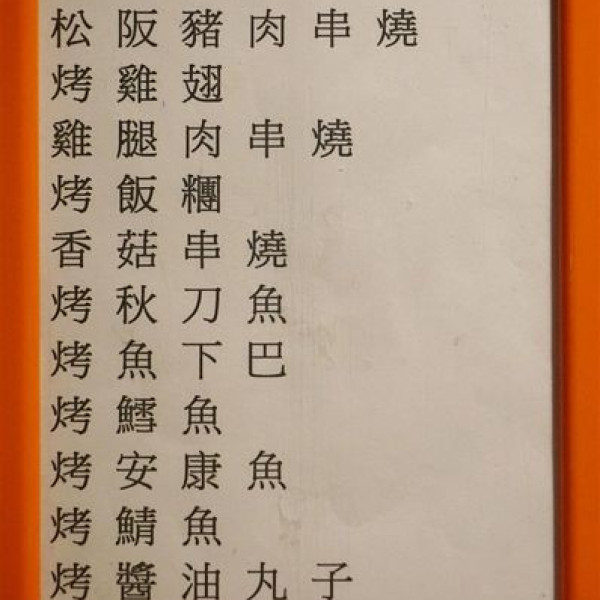 松阪豬肉串燒
烤雞翅
雞腿肉串燒
烤飯糰
香菇串燒
烤秋刀魚
烤魚下巴
烤鱈魚
烤安康魚
烤鯖魚
烤醬油丸子